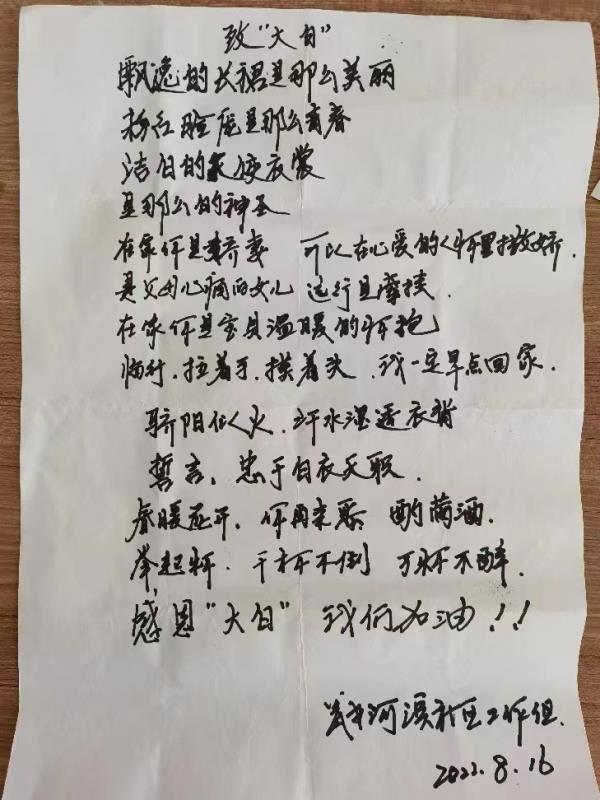 致“大白”
飘逸的长裙是那么美丽
粉红脸庞是那么青春
洁白的天使衣裳
是那么的神圣
在家你是娇妻 可以在心爱的人怀里撒娇.
是父母心疼的女儿 远行是牵挂.
在家你是宝贝温暖的怀抱
临行.拉着手.摸着头.我一定早点回家.
骄阳似火.汗水湿透衣背
誓言,忠于白衣天职.
春暖花开.你再来 酌满酒.
举起杯.千杯不倒 万杯不醉.
感恩“大白” 我们加油!!
河滨社区工作组.
2022.8.16